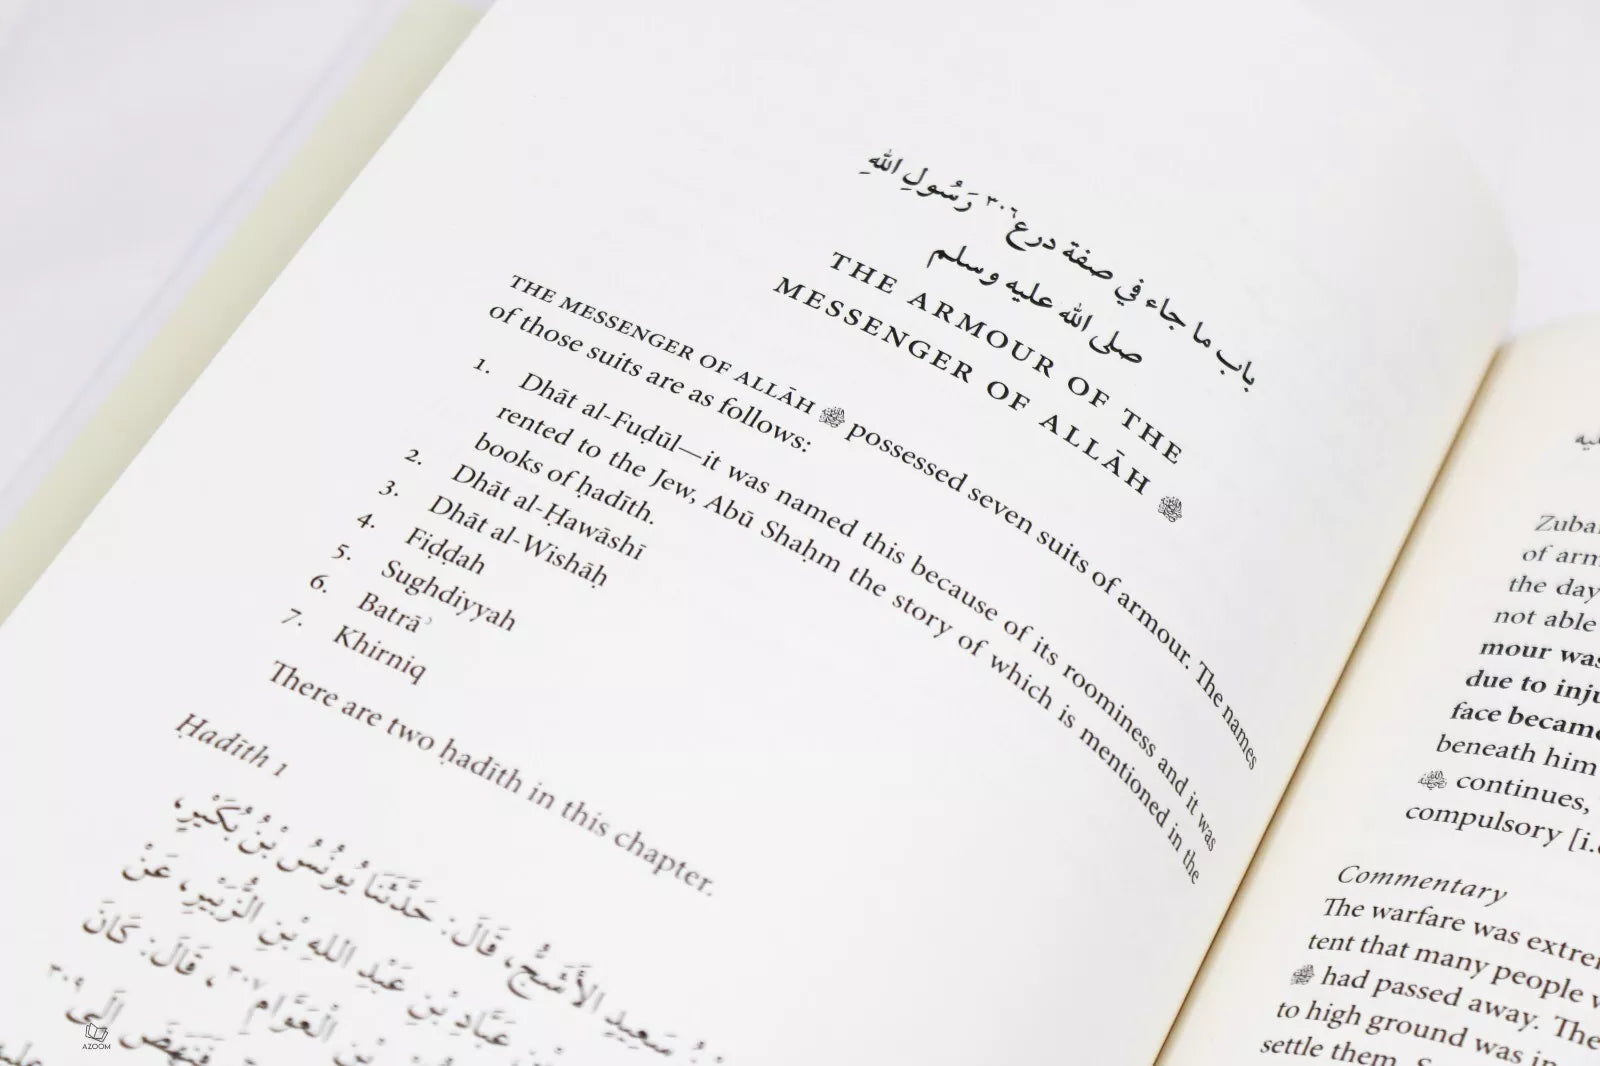 باب ما جاء في صفة درع٣٠٦ رَسُولِ اللهِ
صلى الله عليه وسلم
THE ARMOUR OF THE
MESSENGER OF ALLĀH ﷺ
THE MESSENGER OF ALLĀH ﷺ possessed seven suits of armour. The names
of those suits are as follows:
1. Dhāt al-Fuḍūl—it was named this because of its roominess and it was
rented to the Jew, Abū Shaḥm the story of which is mentioned in the
books of ḥadīth.
2. Dhāt al-Ḥawāshī
3. Dhāt al-Wishāḥ
4. Fiḍḍah
5. Sughdiyyah
6. Batrāʾ
7. Khirniq
There are two ḥadīth in this chapter.
Ḥadīth 1
سَعِيدِ الأَشَجُّ، قَالَ: حَدَّثَنَا يُونُسُ بْنُ بُكَيْرٍ،
عَبَّادِ بْنِ عَبْدِ اللهِ بْنِ الزُّبَيْرِ، عَنْ
بْنِ الْعَوَّامِ٣٠٧، قَالَ: كَانَ
فَنَهَضَ إِلَى٣٠٩
AZOOM
of arm
the day
not able
mour was
due to inju
face became
beneath him
ﷺ continues,
compulsory [i.
Commentary
The warfare was extre
tent that many people
ﷺ had passed away. The
to high ground was in
settle them.